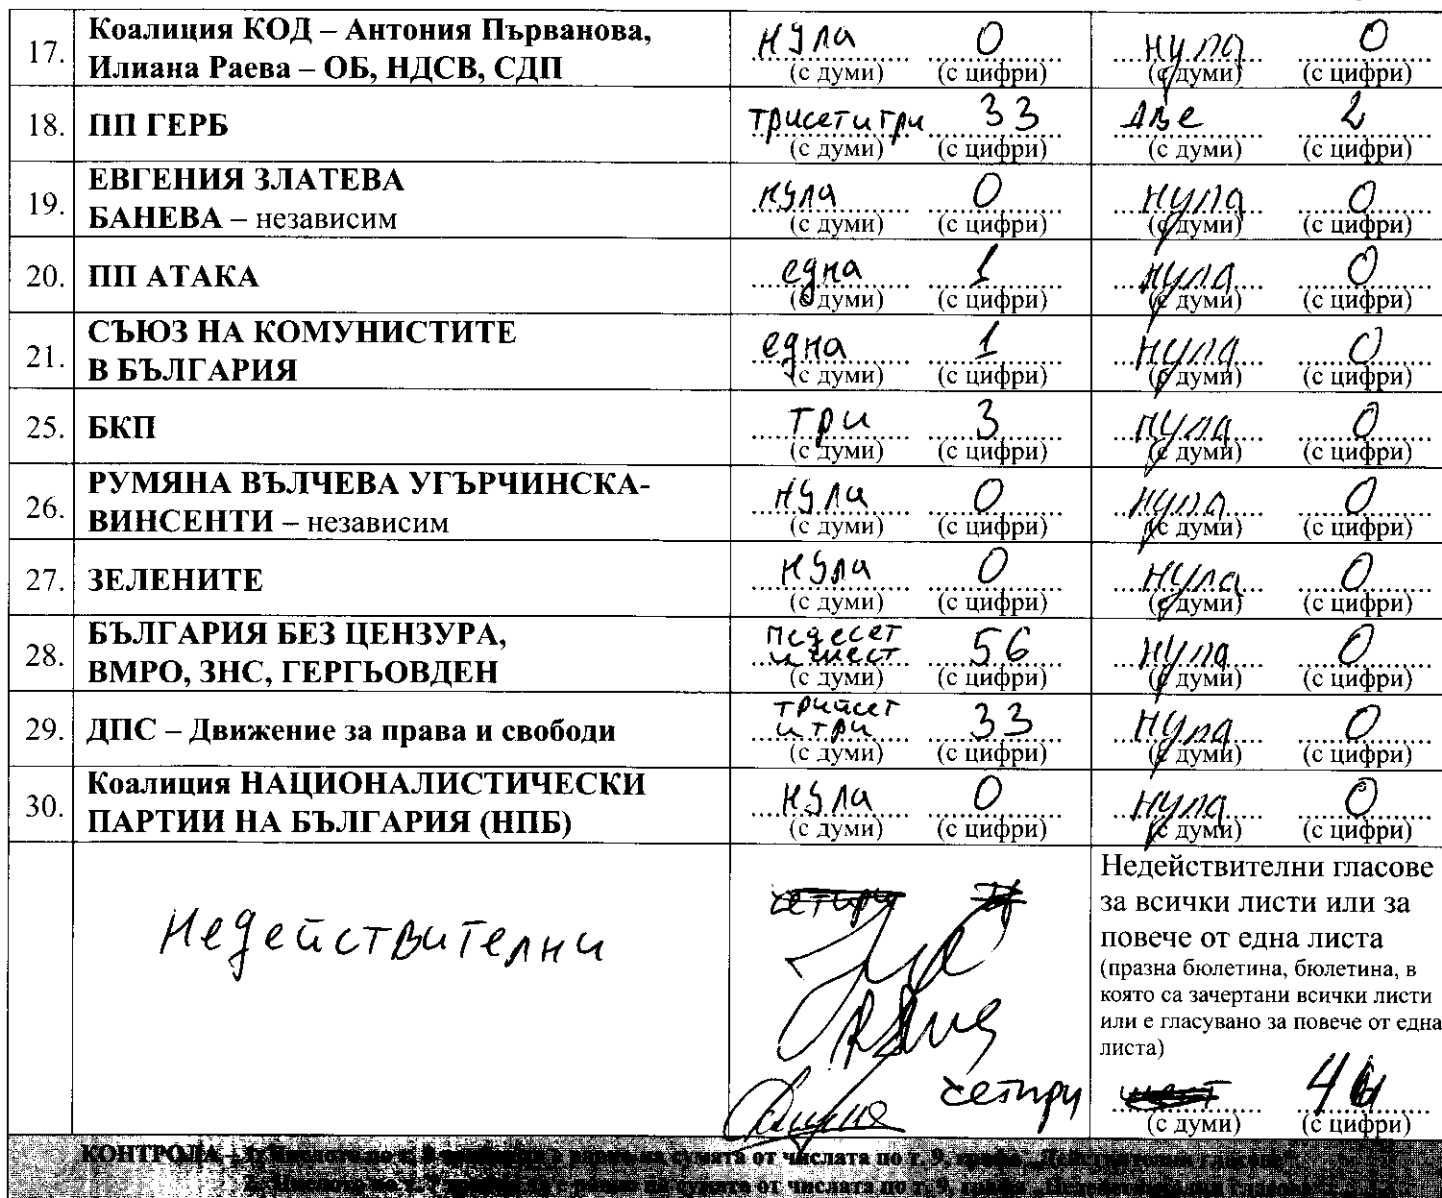 17. Коалиция КОД – Антония Първанова, Илиана Раева – ОБ, НДСВ, СДП нула 0 нула 0
(с думи) (с цифри) (с думи) (с цифри)
18. ПП ГЕРБ трисет и три 33 две 2
(с думи) (с цифри) (с думи) (с цифри)
19. ЕВГЕНИЯ ЗЛАТЕВА БАНЕВА – независим нула 0 нула 0
(с думи) (с цифри) (с думи) (с цифри)
20. ПП АТАКА една 1 нула 0
(с думи) (с цифри) (с думи) (с цифри)
21. СЪЮЗ НА КОМУНИСТИТЕ В БЪЛГАРИЯ една 1 нула 0
(с думи) (с цифри) (с думи) (с цифри)
25. БКП три 3 нула 0
(с думи) (с цифри) (с думи) (с цифри)
26. РУМЯНА ВЪЛЧЕВА УГЪРЧИНСКА-ВИНСЕНТИ – независим нула 0 нула 0
(с думи) (с цифри) (с думи) (с цифри)
27. ЗЕЛЕНИТЕ нула 0 нула 0
(с думи) (с цифри) (с думи) (с цифри)
28. БЪЛГАРИЯ БЕЗ ЦЕНЗУРА, ВМРО, ЗНС, ГЕРГЬОВДЕН педесет и шест 56 нула 0
(с думи) (с цифри) (с думи) (с цифри)
29. ДПС – Движение за права и свободи трийсет и три 33 нула 0
(с думи) (с цифри) (с думи) (с цифри)
30. Коалиция НАЦИОНАЛИСТИЧЕСКИ ПАРТИИ НА БЪЛГАРИЯ (НПБ) нула 0 нула 0
(с думи) (с цифри) (с думи) (с цифри)
Недействителни
четири
Недействителни гласове
за всички листи или за
повече от една листа
(празна бюлетина, бюлетина, в
която са зачертани всички листи
или е гласувано за повече от една
листа)
четири шест 4
(с думи) (с цифри)
КОНТРОЛА сумата от числата по т. 9,
сумата от числата по т. 9,